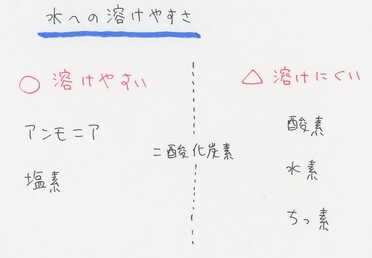 水への溶けやすさ
○ 溶けやすい
アンモニア
塩素
二酸化炭素
△ 溶けにくい
酸素
水素
ちっ素